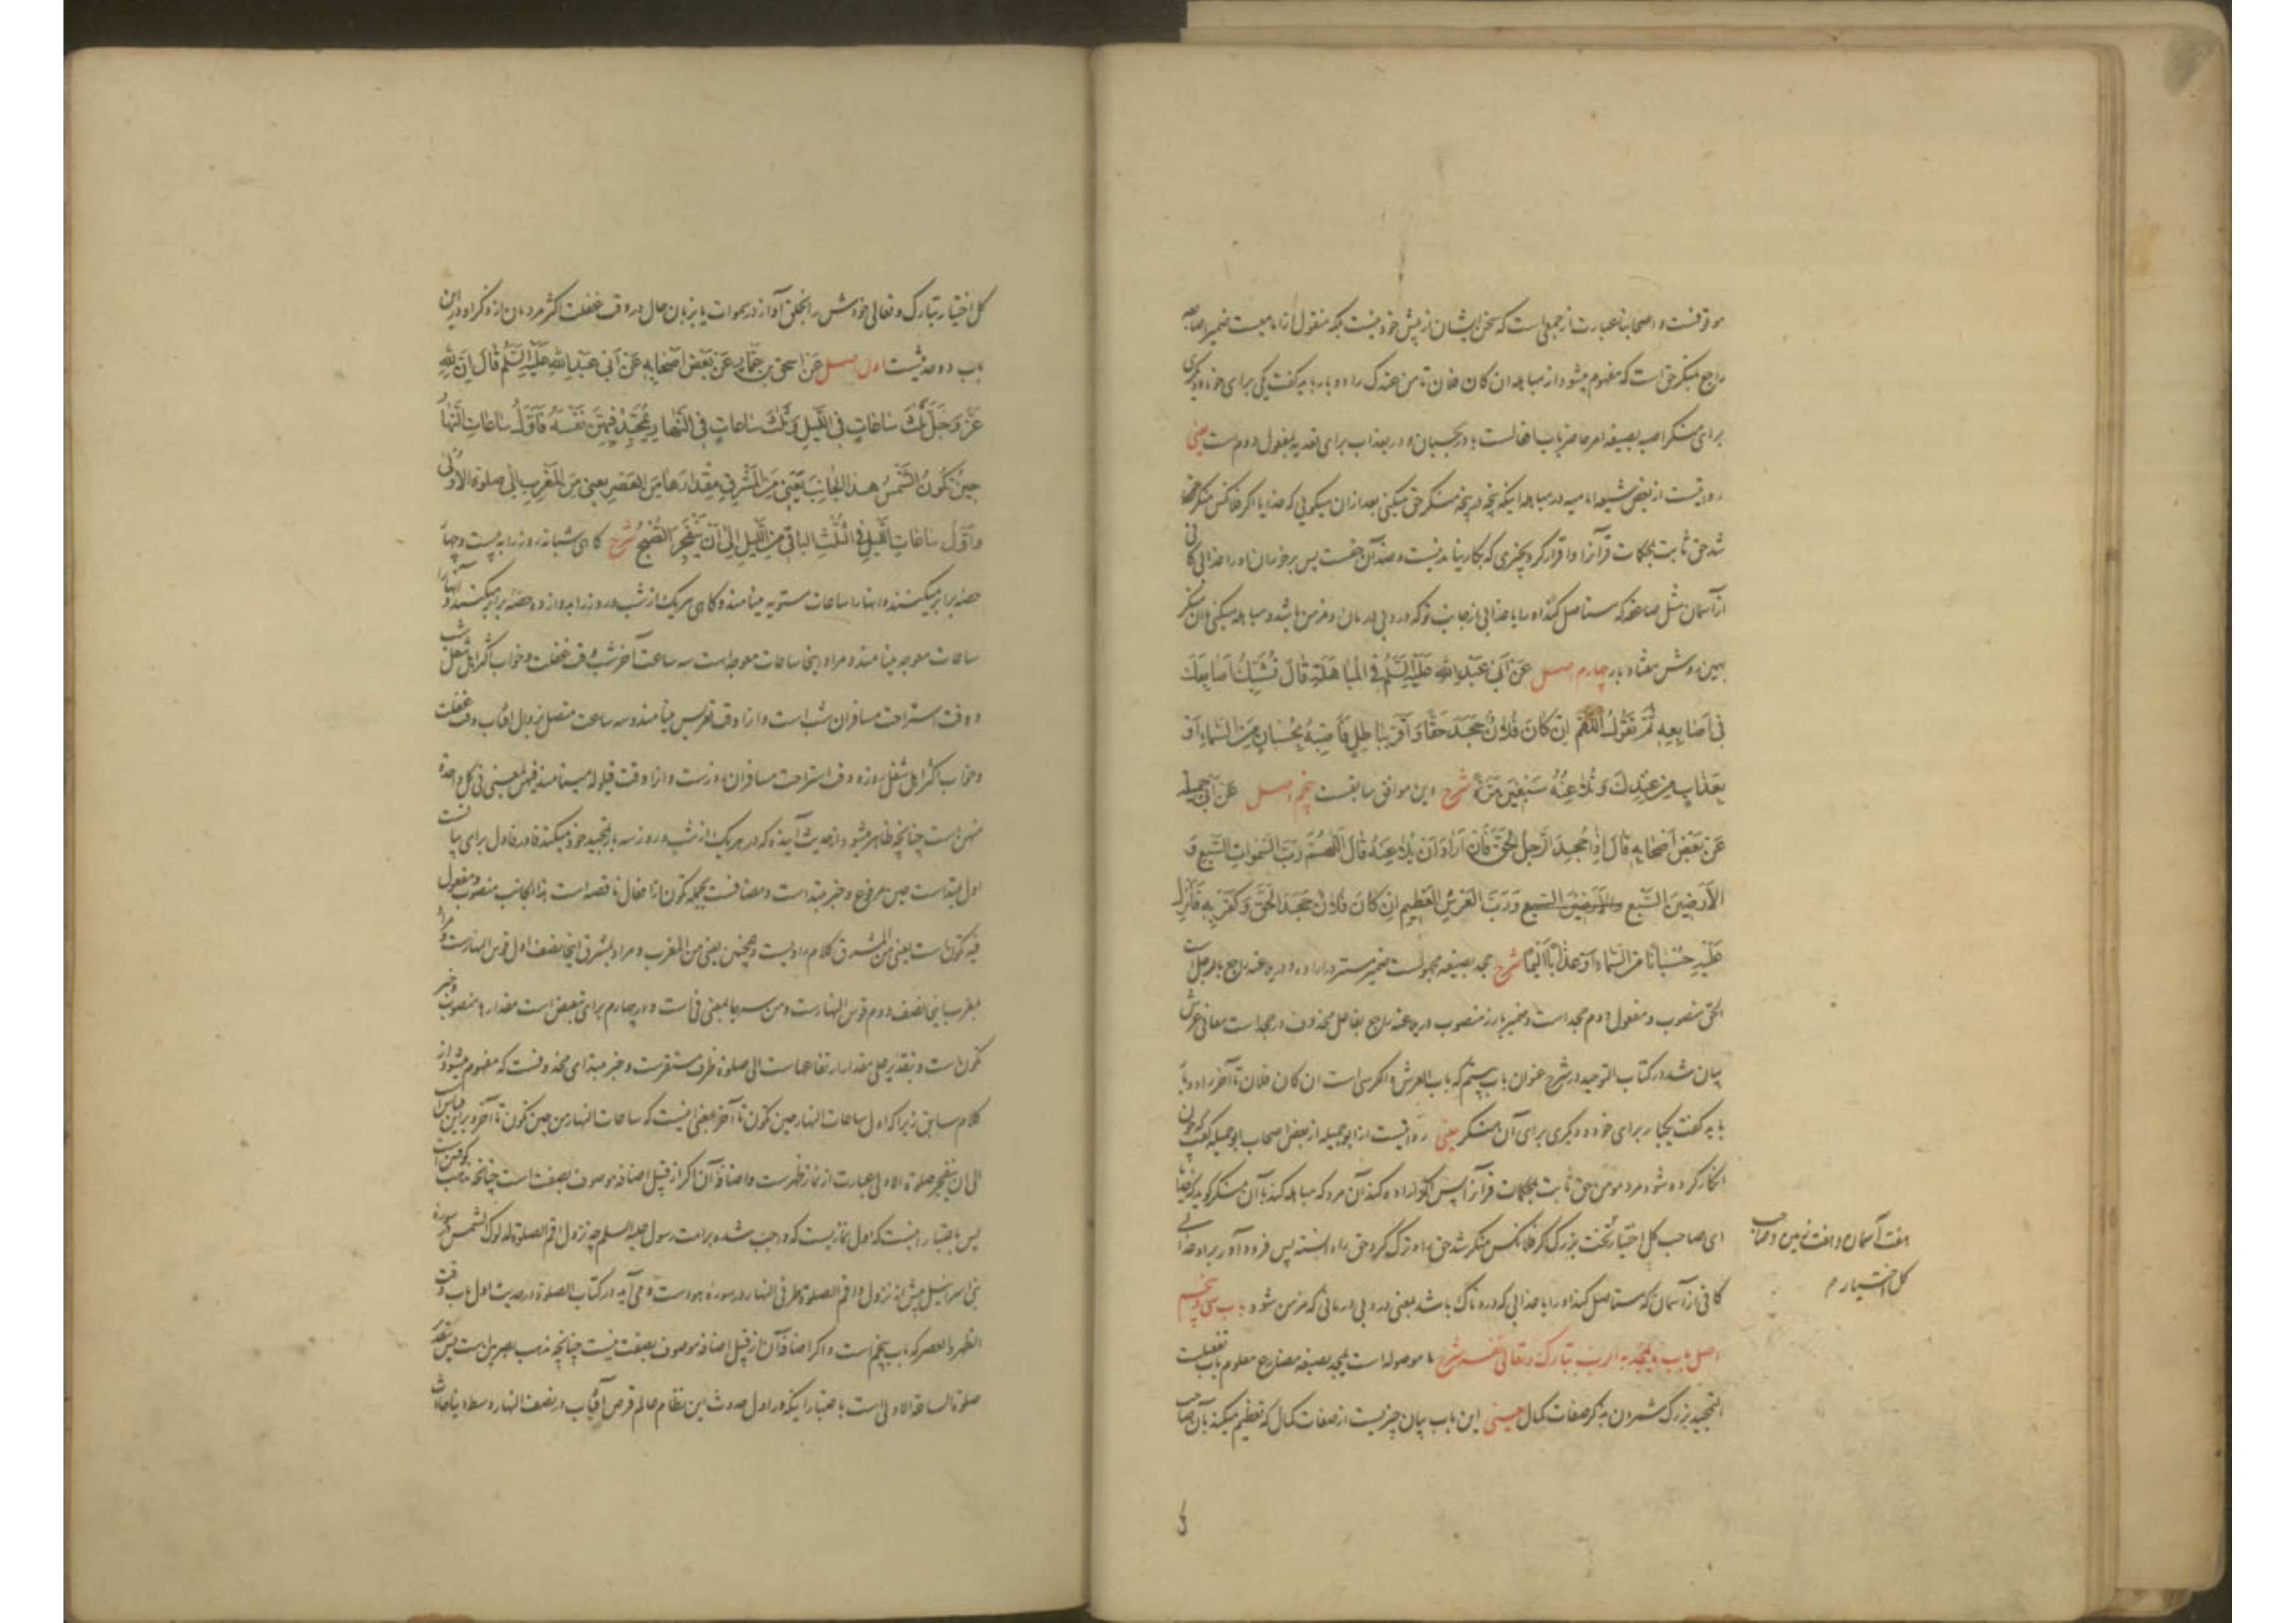 موقوفست و اصحابنا عبارت از جمعی است که سخن ایشان از پیش خود نیست بلکه منقول از امامیست ضمیر اصابعه
راجع بمنکر حق است که مفهوم میشود از مباهله ان کان فلان تا من عندک را دو بار باید گفت یکی برای خود و دیگری
برای منکر اصبه بصیغه امر حاضر باب افعالست با در بحسبان و در بعذاب برای تعدیه بمفعول دوم است یعنی
روایتست از بعض شیعه امامیه در مباهله اینکه پنجه در پنجه منکر حق میکنی بعد از ان میگویی که خدایا اگر فلانکس منکر حق
شد حق ثابت بمحکمات قرآن را و اقرار کرد بچیزی که بکار نیامدنیست و ضد آن حقست پس برخوران او را عذابی کافی
از آسمان مثل صاعقه که مستاصل کند او را یا عذابی از جانب تو که دردی بی درمان و مزمن باشد و مباهله میکنی با ان منکر
بهمین روش هفتاد بار چهارم اصل عَنْ أَبِي عَبْدِ اللهِ عَلَيْهِ السَّلَمُ فِي المُبَاهَلَةِ قَالَ تُشَبِّكُ أَصَابِعَكَ
فِي أَصَابِعِهِ ثُمَّ تَقُولُ اللَّهُمَّ اِنْ كَانَ فُلانٌ جَحَدَ حَقًّا وَ أَقَرَّ بِبَاطِلٍ فَأَصِبْهُ بِحُسْبَانٍ مِنَ السَّمَاءِ أَوْ
بِعَذَابٍ مِنْ عِنْدِكَ وَ تُلاعِنُهُ سَبْعِينَ مَرَّةً شرح این موافق سابقست پنجم اصل عَنْ أَبِي جميلة
عَنْ بَعْضِ أَصْحَابِهِ قَالَ إِذَا جُحِدَ الرَّجُلُ الْحَقَّ فَإِنْ أَرَادَ أَنْ يُلاعِنَهُ قَالَ اللَّهُمَّ رَبَّ السَّمَوَاتِ السَّبْعِ وَ
الأَرَضِينَ السَّبْعِ والأرضين السبع وَرَبَّ الْعَرْشِ الْعَظِيمِ اِنْ كَانَ فُلانٌ جَحَدَ الْحَقَّ وَ كَفَرَ بِهِ فَأَنْزِلْ
عَلَيْهِ حُسْبَانًا مِنَ السَّمَاءِ أَوْ عَذَابًا أَلِيمًا شرح جحد بصیغه مجهولست ضمیر مستتر در اراد و در یلاعنه راجع بالرجل است
الحق منصوب و مفعول دوم جحد است و ضمیر بارز منصوب در یلاعنه راجع بفاعل محذوف در جحد است معانی عرش
بیان شد در کتاب التوحید در شرح عنوان باب بیستم که باب العرش و الکرسی است ان کان فلان تا آخر را دو بار
باید گفت یکبار برای خود و دیگری برای آن منکر یعنی روایتست از ابو جمیله از بعض اصحاب ابو جمیله گفت که چون
انکار کرده شود مرد مومن حق ثابت بمحکمات قرآن را پس اگر اراده کند آن مرد که مباهله کند با آن منکر گوید که خدایا
ای صاحب کل اختیار تخت بزرگ اگر فلانکس منکر شد حق را و ترک کرد حق را دانسته پس فرود آور بر او عذابی
کافی از آسمان که مستاصل کند او را یا عذابی که دردناک باشد یعنی دردی بی درمانی که مزمن شود باب سی و پنجم
اصل باب ما یمجد به الرب تبارک و تعالی نفسه شرح ما موصوله است یمجد بصیغه مضارع معلوم باب تفعیلست
التمجید بزرگ شمردن بذکر صفات کمال یعنی این باب بیان چیزیست از صفات کمال که تعظیم میکند بآن صاحب
هفت آسمان و هفت زمین و صاحب
کل اختیار م
کل
کل اختیار تبارک و تعالی خودش را بخلق آواز در سموات یا بزبان حال در وقت غفلت اکثر مردمان از ذکر او در این
باب دو حدیثست اول اصل عَنْ اسحق بن عَمَّارٍ عَنْ بَعْضِ أَصْحَابِهِ عَنْ أَبِي عَبْدِ اللهِ عَلَيْهِ السَّلَمُ قَالَ إِنَّ لِلّهِ
عَزَّ وَ جَلَّ ثَلثَ سَاعَاتٍ فِي اللَّيْلِ وَ ثَلثَ سَاعَاتٍ فِي النَّهَارِ يُمَجِّدُ فِيهِنَّ نَفْسَهُ فَأَوَّلُ سَاعَاتِ النَّهَارِ
حِينَ تَكُونُ الشَّمْسُ هذَا الْجَانِبَ يَعْنِي مِنَ الْمَشْرِقِ مِقْدَارَهَا مِنَ الْعَصْرِ يعني مِنَ الْمَغْرِبِ إِلَى صَلوة الأُولَى
وَأَوَّلُ سَاعَاتِ اللَّيْلِ فِي الثُّلُثِ الْبَاقِي مِنَ اللَّيْلِ إِلَى أَنْ يَنْفَجِرَ الصُّبْحُ شرح گاهی شبانه روز را به بیست و چهار
حصه برابر میکنند و انها را ساعات مستویه مینامند و گاهی هر یک از شب و روز را بدوازده حصه برابر میکنند و انها را
ساعات معوجه مینامند و مراد اینجا ساعات معوجه است سه ساعت آخر شب وقت غفلت و خواب اکثر اهل شغل شب
و وقت استراحت مسافران شب است و انرا وقت تعریس مینامند و سه ساعت متصل بزوال افتاب وقت غفلت
و خواب اکثر اهل شغل روز و وقت استراحت مسافران روزست و انرا وقت قیلوله مینامند فیهن بمعنی فی کل واحدة
منهن است چنانچه ظاهر میشود از حدیث آینده که در هر یک از شب و روز سه بار تمجید خود میکند فا در فاول برای بیانست
اول مبتداست حین مرفوع و خبر مبتداست و مضافست بجمله تکون از افعال ناقصه است هذا الجانب منصوب و مفعول
فیه تکون است یعنی من المشرق کلام راویست و همچنین یعنی من المغرب و مراد بمشرق اینجا نصف اول قوس النهارست و مراد
بمغرب اینجا نصف دوم قوس النهارست و من سه جا بمعنی فی است و در چهارم برای تبعیض است مقدارها منصوب و خبر
تکون است و بتقدیر علی مقدار ارتفاعهاست الی صلوة ظرف مستقرست و خبر مبتدای محذوفست که مفهوم میشود از
کلام سابق زیرا که اول ساعات النهار حین تکون تا آخر بمعنی اینست که ساعات النهار من حین تکون تا آخر و بر این قیاس است
الی ان ینفجر صلوة الاولی عبارت از نماز ظهرست و اضافه آن اگر از قبیل اضافه موصوف بصفت است چنانچه مذهب کوفیین است
پس باعتبار اینست که اول نمازیست که واجب شده بر امت رسول علیه السلم چه نزول اقم الصلوة لدلوک الشمس در سوره
بنی اسرائیل پیش از نزول و اقم الصلوة طرفی النهار در سوره هودست و می آید در کتاب الصلوة در حدیث اول باب وقت
الظهر و العصر که باب پنجم است و اگر اضافه آن از قبیل اضافه موصوف بصفت نیست چنانچه مذهب بصریین است پس بتقدیر
صلوة الساعة الاولی است باعتبار اینکه در اول حدوث این نظام عالم قرص آفتاب در نصف النهار وسط دنیا